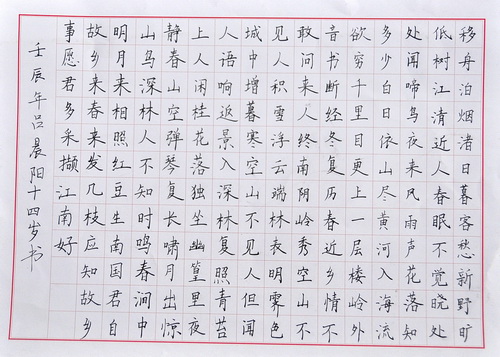 移舟泊烟渚日暮客愁新野旷
低树江清近人春眠不觉晓处
处闻啼鸟夜来风雨声花落知
多少白日依山尽黄河入海流
欲穷千里目更上一层楼岭外
音书断经冬复历春近乡情不
敢问来人终南阴岭秀空山不
见人积雪浮云端林表明霁色
城中增暮寒空山不见人但闻
人语响返景入深林复照青苔
上人闲桂花落独坐幽篁里夜
静春山空弹琴复长啸月出惊
山鸟深林人不知时鸣春涧中
明月来相照红豆生南国君自
故乡来春来发几枝应知故乡
事愿君多采撷江南好
壬辰年吕晨阳十四岁书